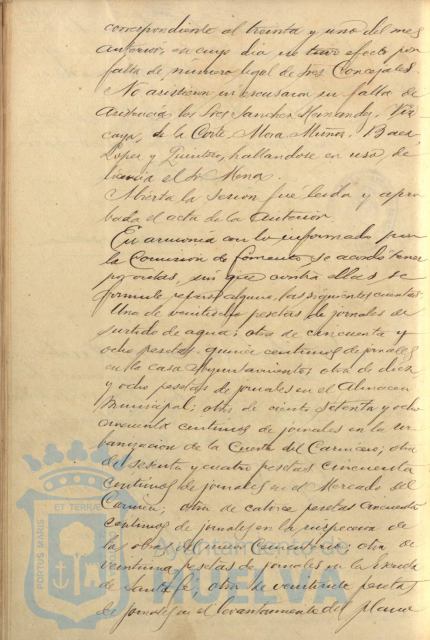 correspondiente al treinta y uno del mes
anterior, en cuyo dia no tuvo efecto por
falta de número legal de Sres Concejales.
No asistieron ni escusaron su falta de
asistencia los Sres Sanchez Hernandez, Viz
caya, de la Corte, Mora Muñoz, Baez
Lopez y Quintero, hallandose en uso de
licencia el Sr Mena.
Abierta la sesion fué leida y apro
bada el acta de la anterior.
En armonia con lo informado por
la Comision de fomento, se acordó tener
por, sin que contra ellas se
formule reparo alguno, las siguientes cuentas:
Una de veintiocho pesetas de jornales en
surtido de agua; otra de cincuenta y
ocho pesetas, quince centimos de jornales
en la casa Ayuntamiento; otra de diez
y ocho pesetas de jornales en el Almacen
Municipal; otra de ciento setenta y ocho
cincuenta centimos de jornales en la ur
banizacion de la Cuesta del Carnicero; otra
de sesenta y cuatro pesetas cincuenta
centimos de jornales en el Mercado del
Carmen; otra de catorce pesetas cincuenta
centimos de jornales en la inspeccion de
las obras del nuevo Cementerio; otra de
veintiuna pesetas de jornales en la Escuela
de Santa Fe; otra de veintisiete pesetas
de jornales en el levantamiento del plano
PORTUS MARIS ET TERRAE
Ayuntamiento de
HUELVA